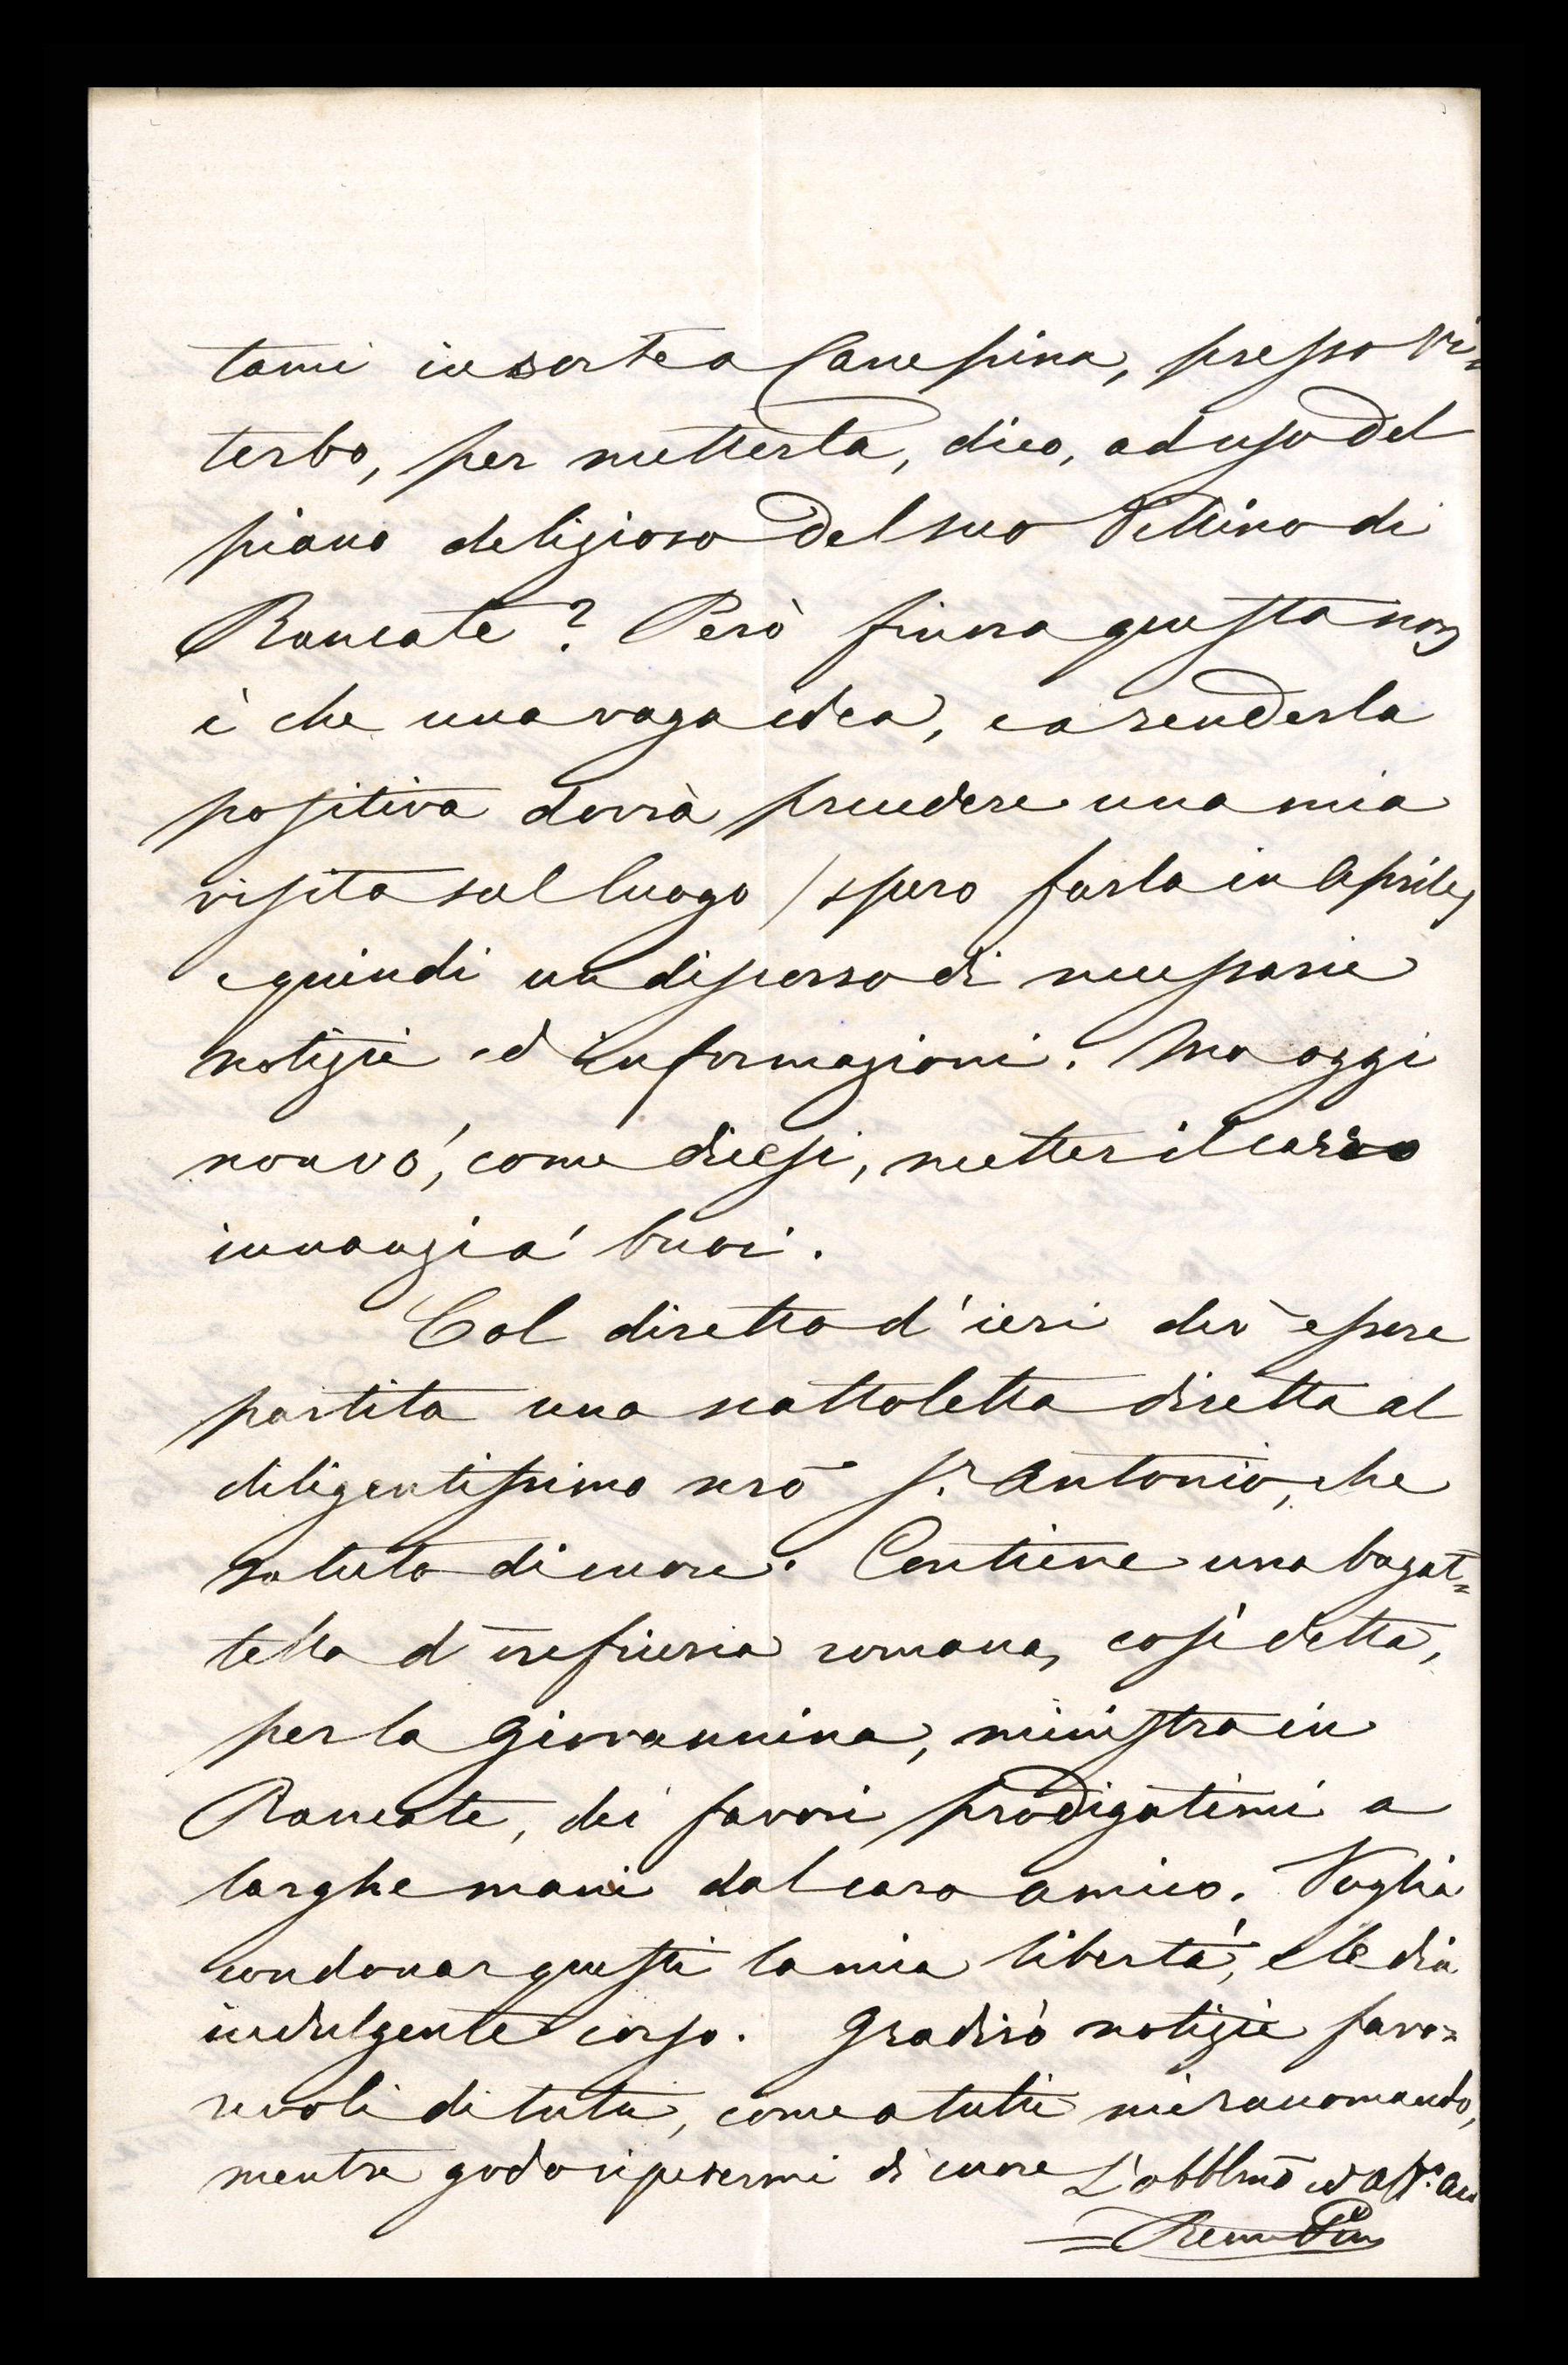 tami in sorte a Canepina, presso Vi=
terbo, per metterla, dico, ad uso del
piano deligioso del suo Vittino di
Rancate? Però finora questa non
è che una vaga idea, e a renderla
positiva dovrà precedere una mia
visita sul luogo (spero farla in Aprile)
e quindi un disperso di necessarie
notizie ed informazioni. Ma oggi
non vo', come dicesi, metter il carro
innanzi a' buoi.
Col diretto d'ieri dev'essere
partita una scattoletta diretta al
diligentissimo nrō Sr. Antonio, che
saluto di cuore. Contiene una bagat=
tella d'oreficeria romana, così detta,
per la Giovannina, ministra in
Rancate, dei favori prodigatimi a
larghe mani dal caro amico. Voglia
condonar questi la mia libertà, e le dia
indulgente corso. Gradirò notizie favo=
revoli di tutti, come a tutti mi raccomando,
mentre godo ripetermi di cuore L'obblmō ed aff.o